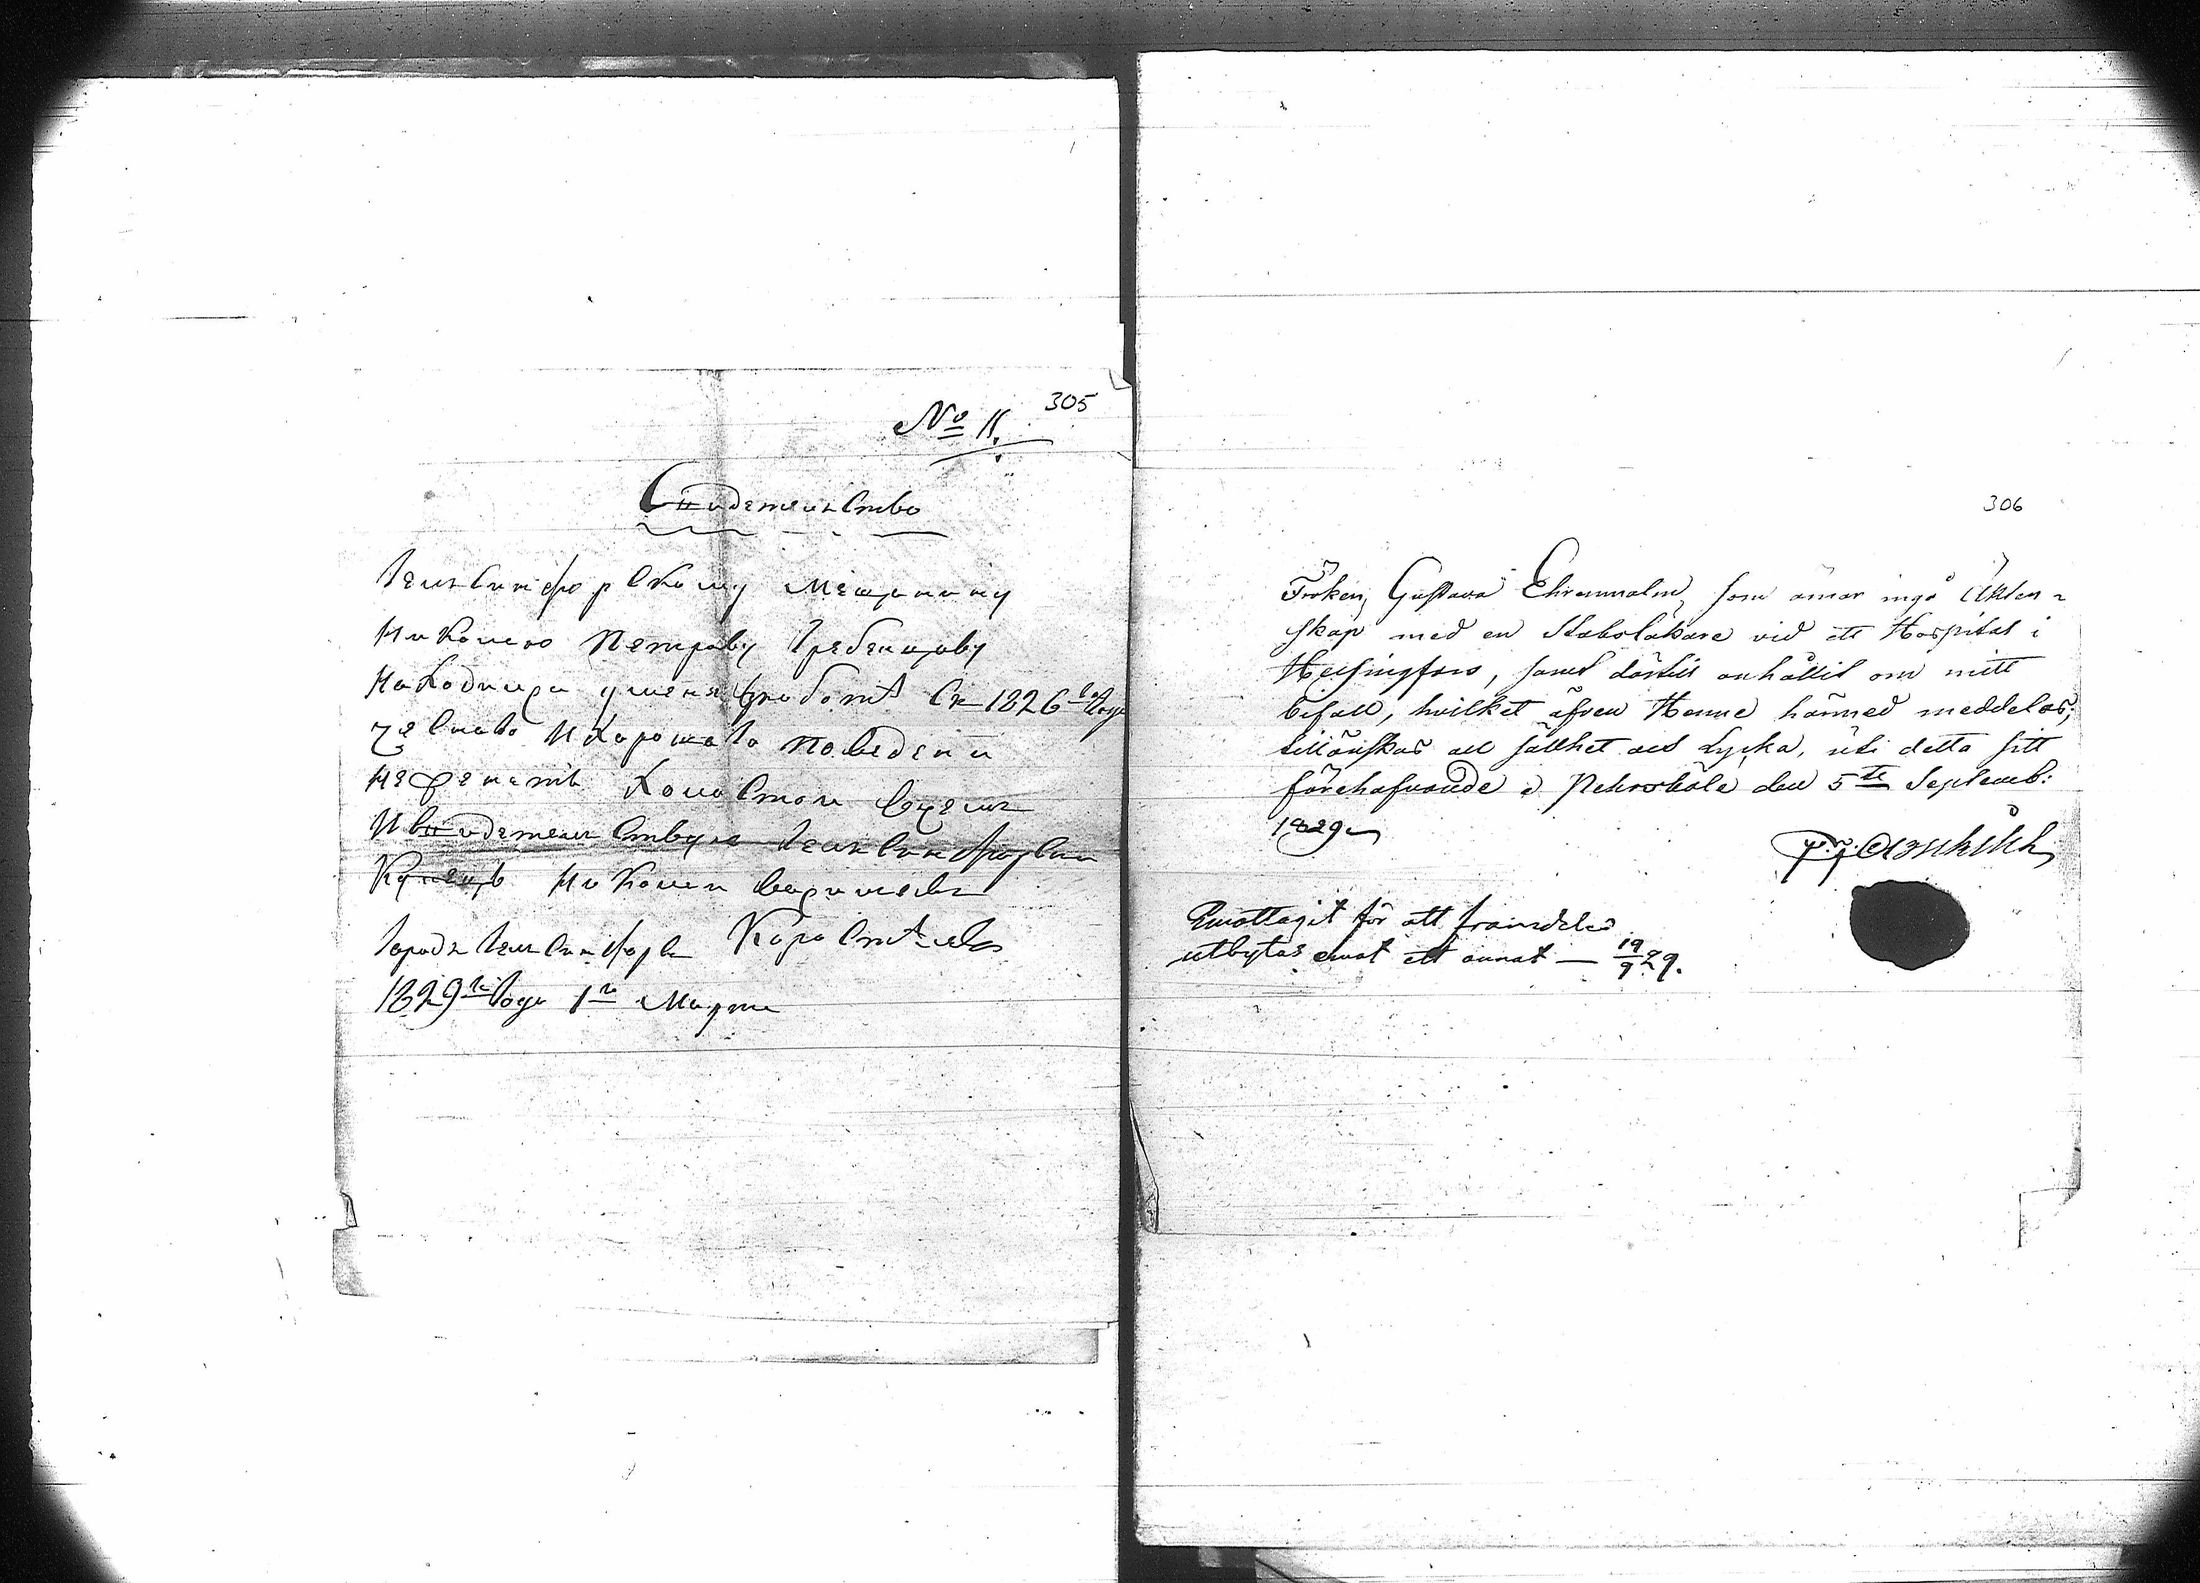 305
No 11.
Свидетельство
Гельсингфорскому мещанину
Николаю Петраву Гребенщову
Находилца уменя вработе Съ 1826 го Году
честнаго И Хорошаго поведени
Неженатъ Холостой
И свидетельствую Гельсингфорски
Купецъ Николай
Городъ Гельсингфорсъ
1829 го Году 1 го Марта
306
Fröken Gustava Ehrenmalm, som ärnar ingå Äkten-
skap med en Stabsläkare vid ett Hospital i
Helsingfors, samt därtill anhållit om mitt
bifall, hvilket äfven Henne härmed meddelas;
tillönskas all sällhet och Lycka, uti detta sitt
förehafvande, Pehrsböle den 5te Septemb:
1829
Emottagit för att framdeles
utbytas emot ett annat — 19/9 29.